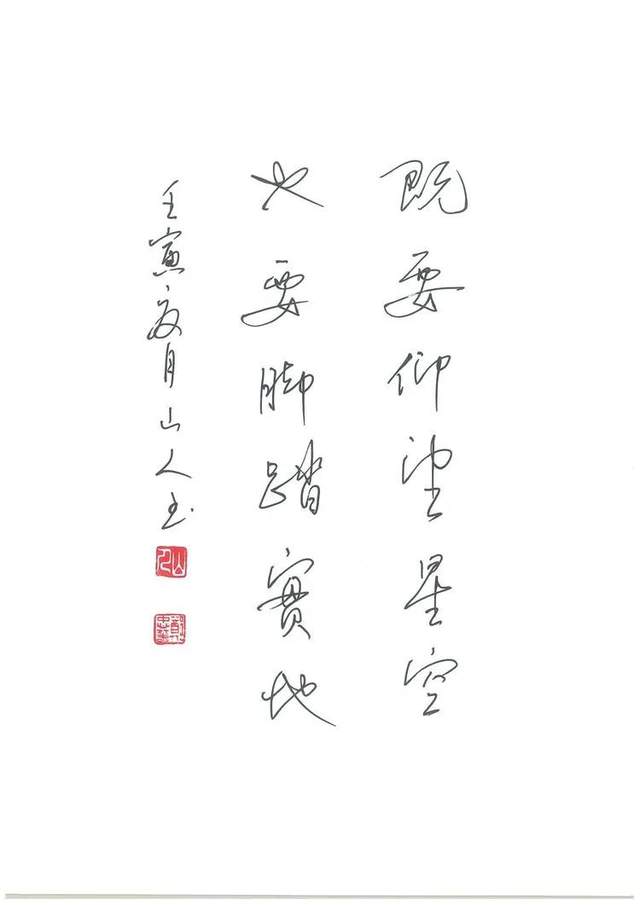 既要仰望星空
也要脚踏實地
壬寅夏月山人书
山人